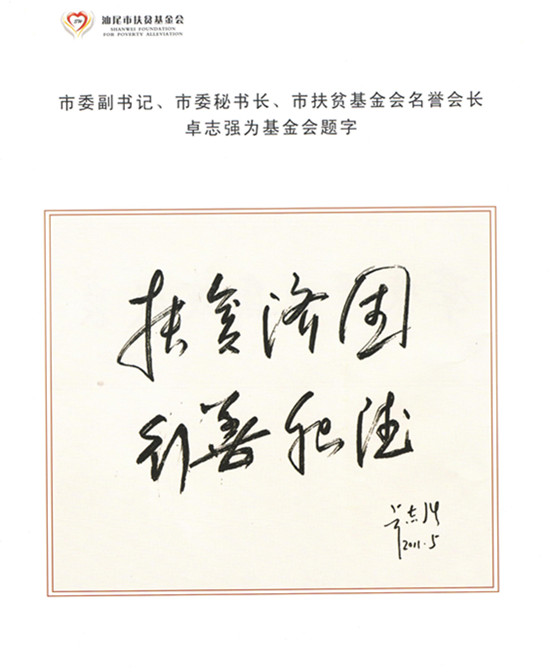 汕尾市扶贫基金会
SHANWEI FOUNDATION
FOR POVERTY ALLEVIATION
市委副书记、市委秘书长、市扶贫基金会名誉会长
卓志强为基金会题字
扶贫济困
行善积德
卓志强
2011.5